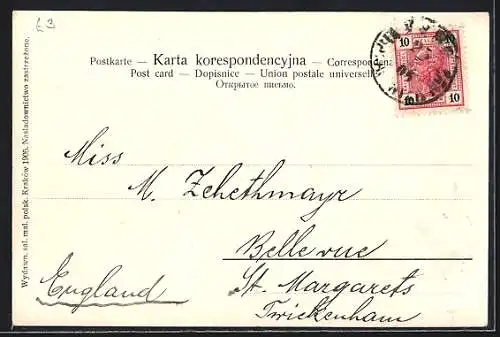 Postkarte — Karta korespondencyjna — Correspondenz
Post card — Dopisnice — Union postale universelle
Открытое письмо.
10
10 10
Wydawn. sal. mal. polsk. Kraków 1905. Naśladownictwo zastrzeżone.
Miss
M. Zehethmayr
Bellevue
England
St. Margarets
Twickenham